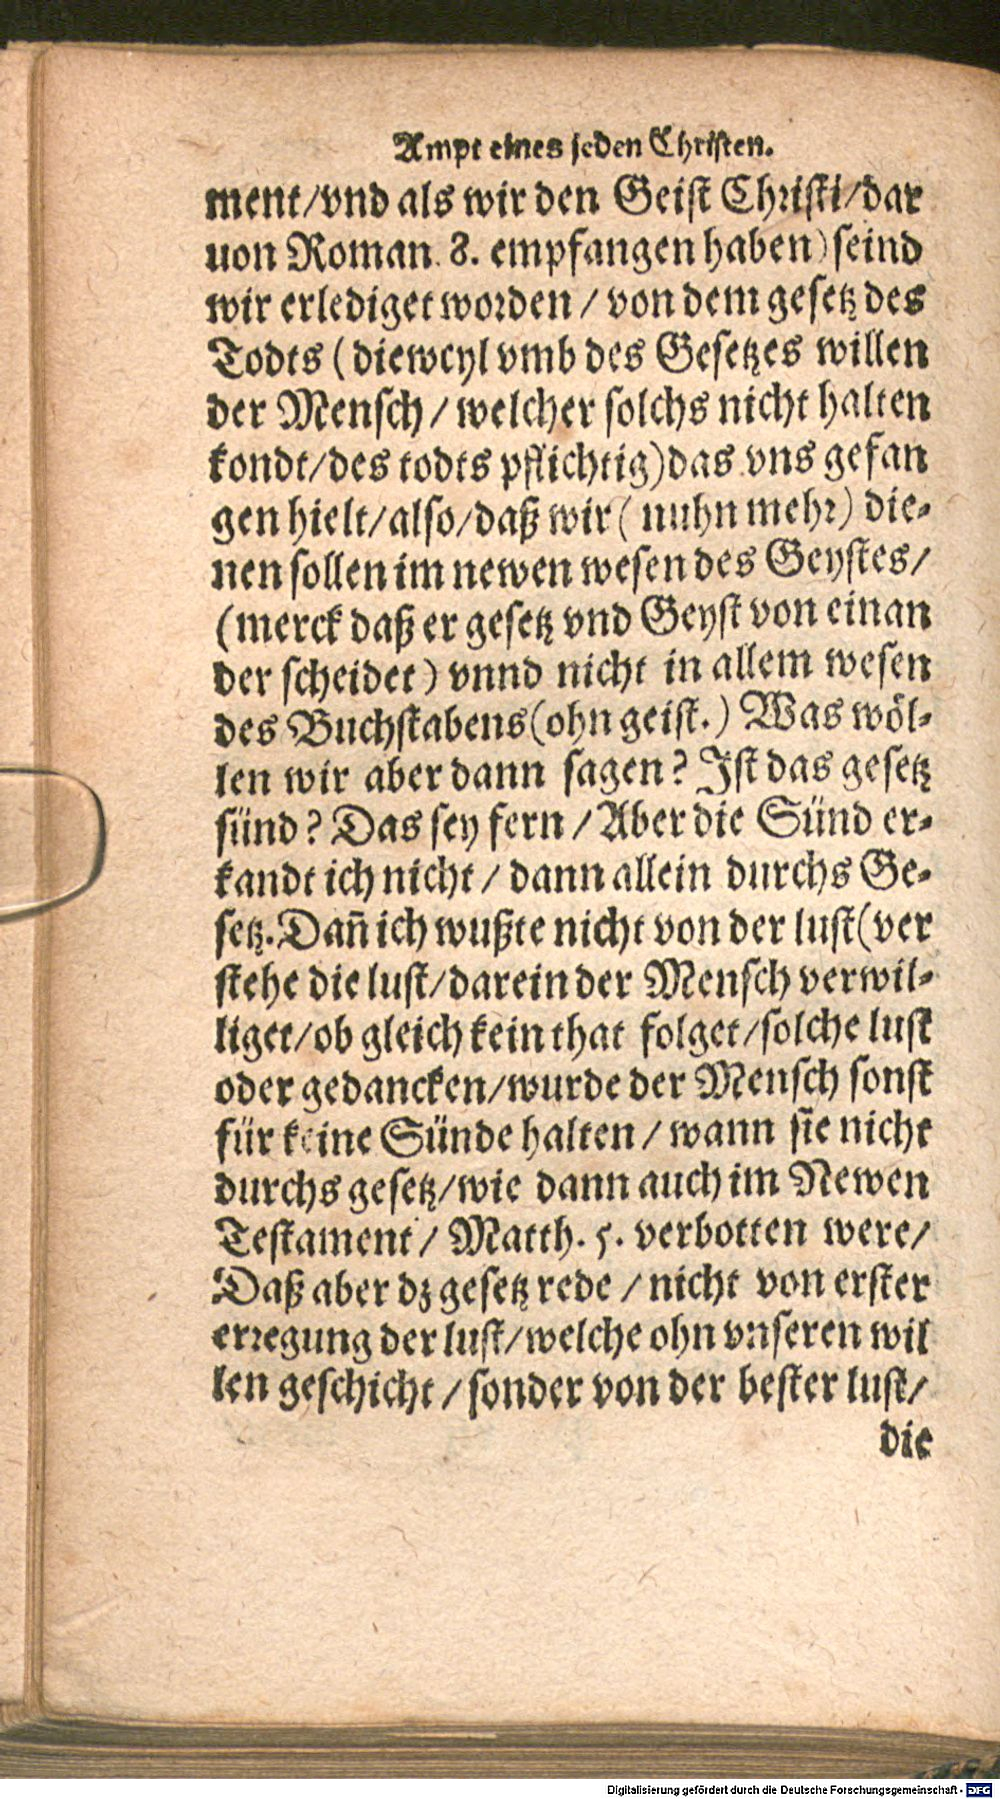 Ampt eines jeden Christen.
ment/vnd als wir den Geist Christi/dar
uon Roman. 8. empfangen haben) seind
wir erlediget worden / von dem gesetz des
Todts ( dieweyl vmb des Gesetzes willen
der Mensch / welcher solchs nicht halten
kondt/des todts pflichtig)das vns gefan
gen hielt/also/daß wir ( nuhn mehr) die-
nen sollen im newen wesen des Geystes/
(merck daß er gesetz vnd Geyst von einan
der scheidet) vnnd nicht in allem wesen
des Buchstabens(ohn geist.) Was wöl-
len wir aber dann sagen? Ist das gesetz
sünd? Das sey fern / Aber die Sünd er-
kandt ich nicht / dann allein durchs Ge-
setz. Dañ ich wußte nicht von der lust(ver
stehe die lust/darein der Mensch verwil-
liget/ob gleich kein that folget/solche lust
oder gedancken/wurde der Mensch sonst
für keine Sünde halten / wann sie nicht
durchs gesetz/wie dann auch im Newen
Testament / Matth. 5. verbotten were/
Daß aber dz gesetz rede / nicht von erster
erregung der lust/welche ohn vnseren wil
len geschicht / sonder von der bester lust/
die
Digitalisierung gefördert durch die Deutsche Forschungsgemeinschaft - DFG